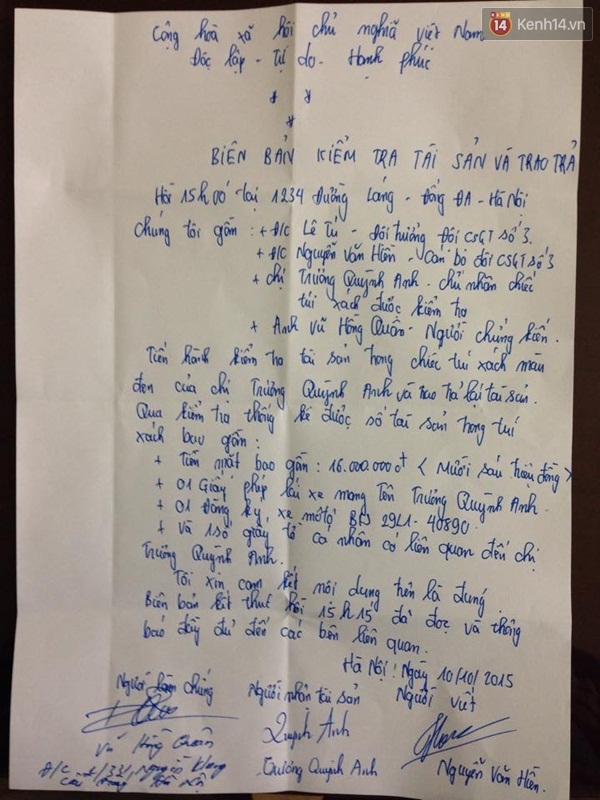 14 Kenh14.vn
Cộng hoà xã hội chủ nghĩa việt Nam
Độc lập - Tự do - Hạnh phúc
* *
*
BIÊN BẢN KIỂM TRA TÀI SẢN VÀ TRAO TRẢ
Hồi 15h00 tại 1234 Đường Láng - Đống ĐA - Hà Nội
chúng tôi gồm : + Đ/C Lê Tú - Đội trưởng Đội CSGT số 3.
+ Đ/C Nguyễn Văn Hiền - Cán bộ đội CSGT số 3
+ chị Trương Quỳnh Anh - chủ nhân chiếc
túi xách được kiểm tra
+ Anh vũ Hồng Quân - Người chứng kiến.
Tiến hành kiểm tra tài sản trong chiếc túi xách màu
đen của chị Trương Quỳnh Anh và trao trả lại tài sản.
Qua kiểm tra thống kê được số tài sản trong túi
xách bao gồm :
+ Tiền mặt bao gồm : 16.000.000đ < Mười sáu triệu đồng >
+ 01 Giấy phép lái xe mang Tên Trương Quỳnh Anh.
+ 01 Đăng ký xe môtô BKS 29L1 - 40890.
+ Và 1 số giấy tờ cá nhân có liên quan đến chị
Trương Quỳnh Anh.
Tôi xin cam kết nội dung trên là đúng.
Biên bản kết thúc hồi 15h15 đã đọc và thông
báo đầy đủ đến các bên liên quan.
Hà Nội ! Ngày 10/10/2015
Người làm chứng Người nhận tài sản Người viết
Quỳnh Anh
Vũ Hồng Quân Trương Quỳnh Anh Nguyễn Văn Hiền.
Đ/C